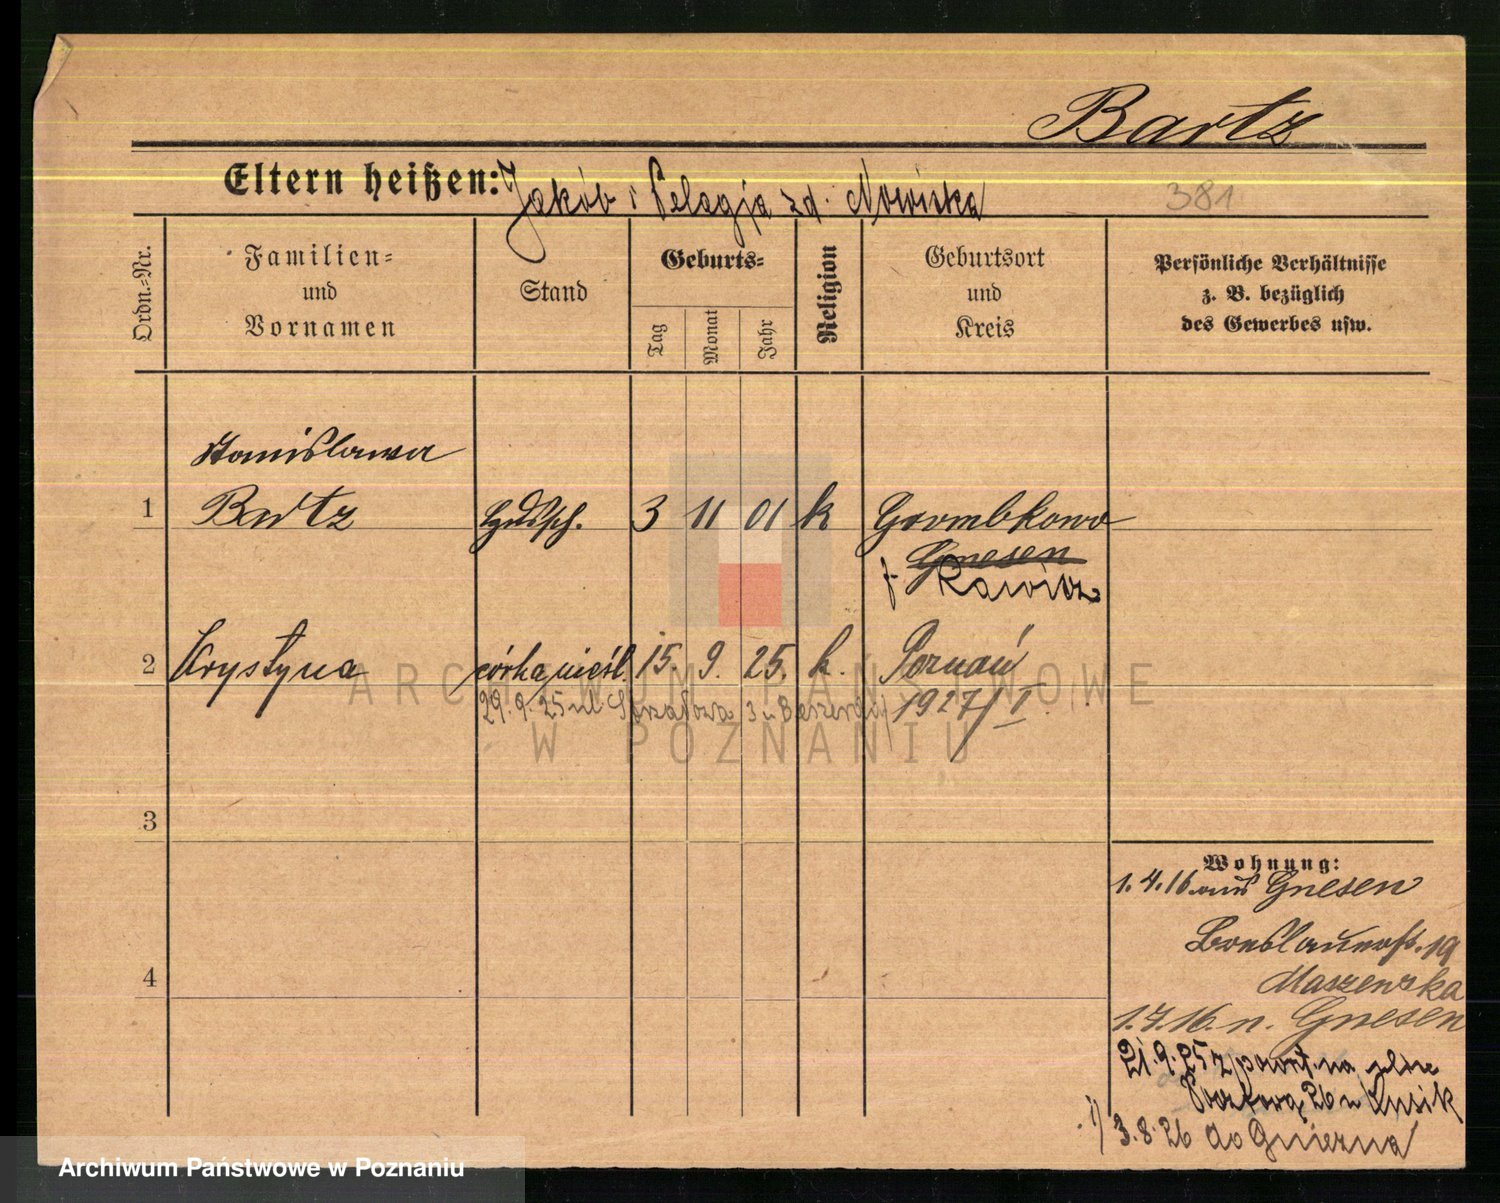 Bartz
Eltern heißen: Jakób i Pelagja zd. Nowicka
381
Ordn.-Nr.
Familien-
und
Vornamen
Stand
Geburts-
Tag
Monat
Jahr
Religion
Geburtsort
und
Kreis
Persönliche Verhältnisse
z. B. bezüglich
des Gewerbes usw.
Stanislawa
1 Bartz 3 11 01 k
Gnesen
Rawicz
2 Krystyna córka nieśl. 15. 9. 25. k. Poznań
29.9.25 ul. 1927/I
ARCHIWUM PAŃSTWOWE
W POZNANIU
3
Wohnung:
1.4.16 aus Gnesen
Breslauerst. 19
4
1.7.16. n. Gnesen
21.9.25 z powrot. na
Pocztową 26 u
1) 3.8.26 do Gniezna
Archiwum Państwowe w Poznaniu